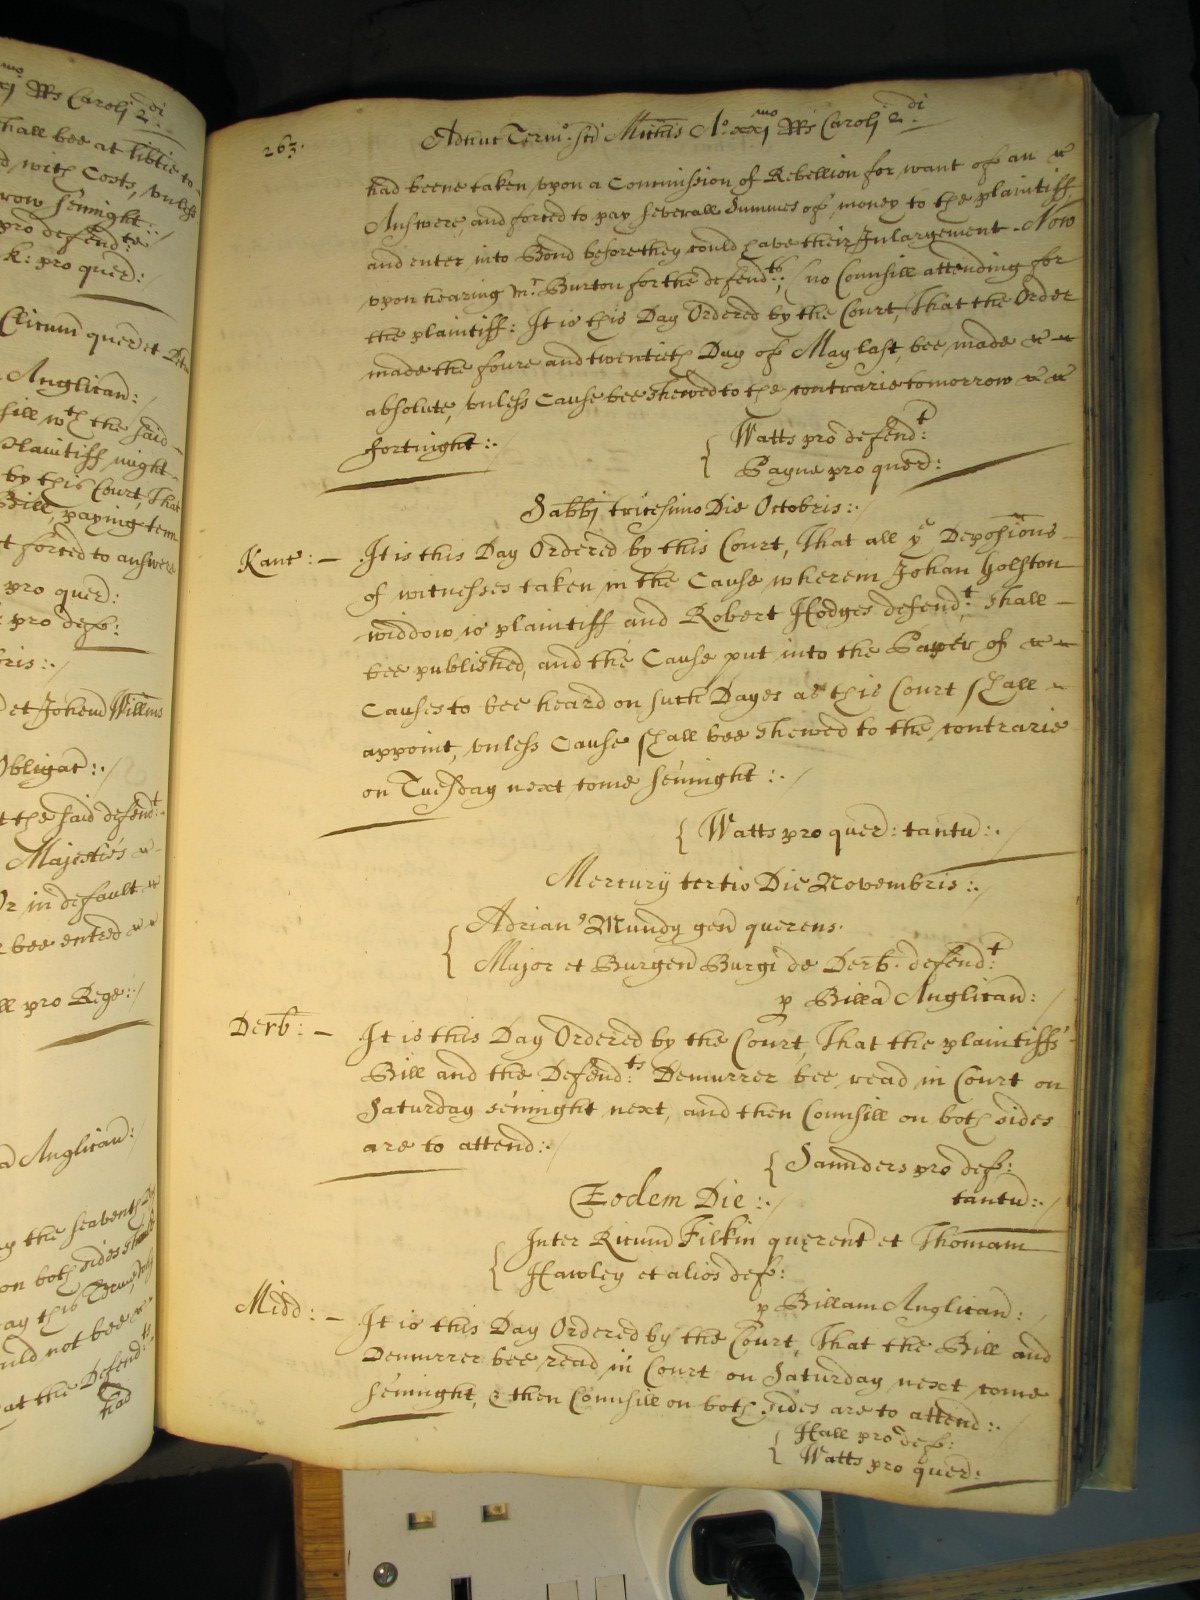 xxj Rs Caroli 2di
shall bee at libtie to
d, with Costs, unless
row sennight :
pro defendte
k: pro quer:
Ricum quer et
Anglican:
sill wth the said
Plaintiff might
by this Court, That
Bill, paying
t forced to answere
pro quer:
pro def:
bris :
et Johem Willms
Obligac :
t the said defendt
Majesties
Or in default
bee entred
ll pro Rege :
Anglican:
the seaventh
on both sides
ay this
uld not bee
at the Defendts
had
263.
Adhuc Termo. sci Michis Ao. xxjmo Rs Caroli 2di
had beene taken upon a Commission of Rebellion for want of an
Answere, and forced to pay severall Summes of money to the plaintiff
and enter into Bond before they could have their Inlargement. Now
upon hearing Mr. Burton for the defendts; (no Counsill attending for
the plaintiff: It is this Day Ordered by the Court, That the Order
made the foure and twentieth Day of May last, bee made
absolute, unless Cause bee shewed to the contrarie tomorrow
fortnight :
Watts pro defendt:
Payne pro quer:
Sabbi tricesimo Die Octobris :
Kanc: – It is this Day Ordered by this Court, That all ye Deposicions
of witnesses taken in the Cause wherein Johan Holston
widdow is plaintiff and Robert Hodges defendt: shall
bee published, and the Cause put into the Paper of
Causes to bee heard on such Dayes as this Court shall
appoint, unless Cause shall bee shewed to the contrarie
on Tuesday next come sennight :
Watts pro quer: tantu:
Mercurij tertio Die Novembris :
Adrian' Mundy gen querens.
Major et Burgen Burgi de Derb. defendt:
p Billa Anglican:
Derb: – It is this Day Ordered by the Court, That the plaintiffs
Bill and the Defendts: Demurrer bee read in Court on
Saturday sennight next, and then Counsill on both sides
are to attend :
Saunders pro def:
tantu:
Eodem Die :
Inter Ricum Filkin querent et Thomam
Hawley et alios def:
p Billam Anglican:
Midd: – It is this Day Ordered by the Court, That the Bill and
Demurrer bee read in Court on Saturday next come
sennight, & then Counsill on both sides are to attend :
Hall pro def:
Watts pro quer: